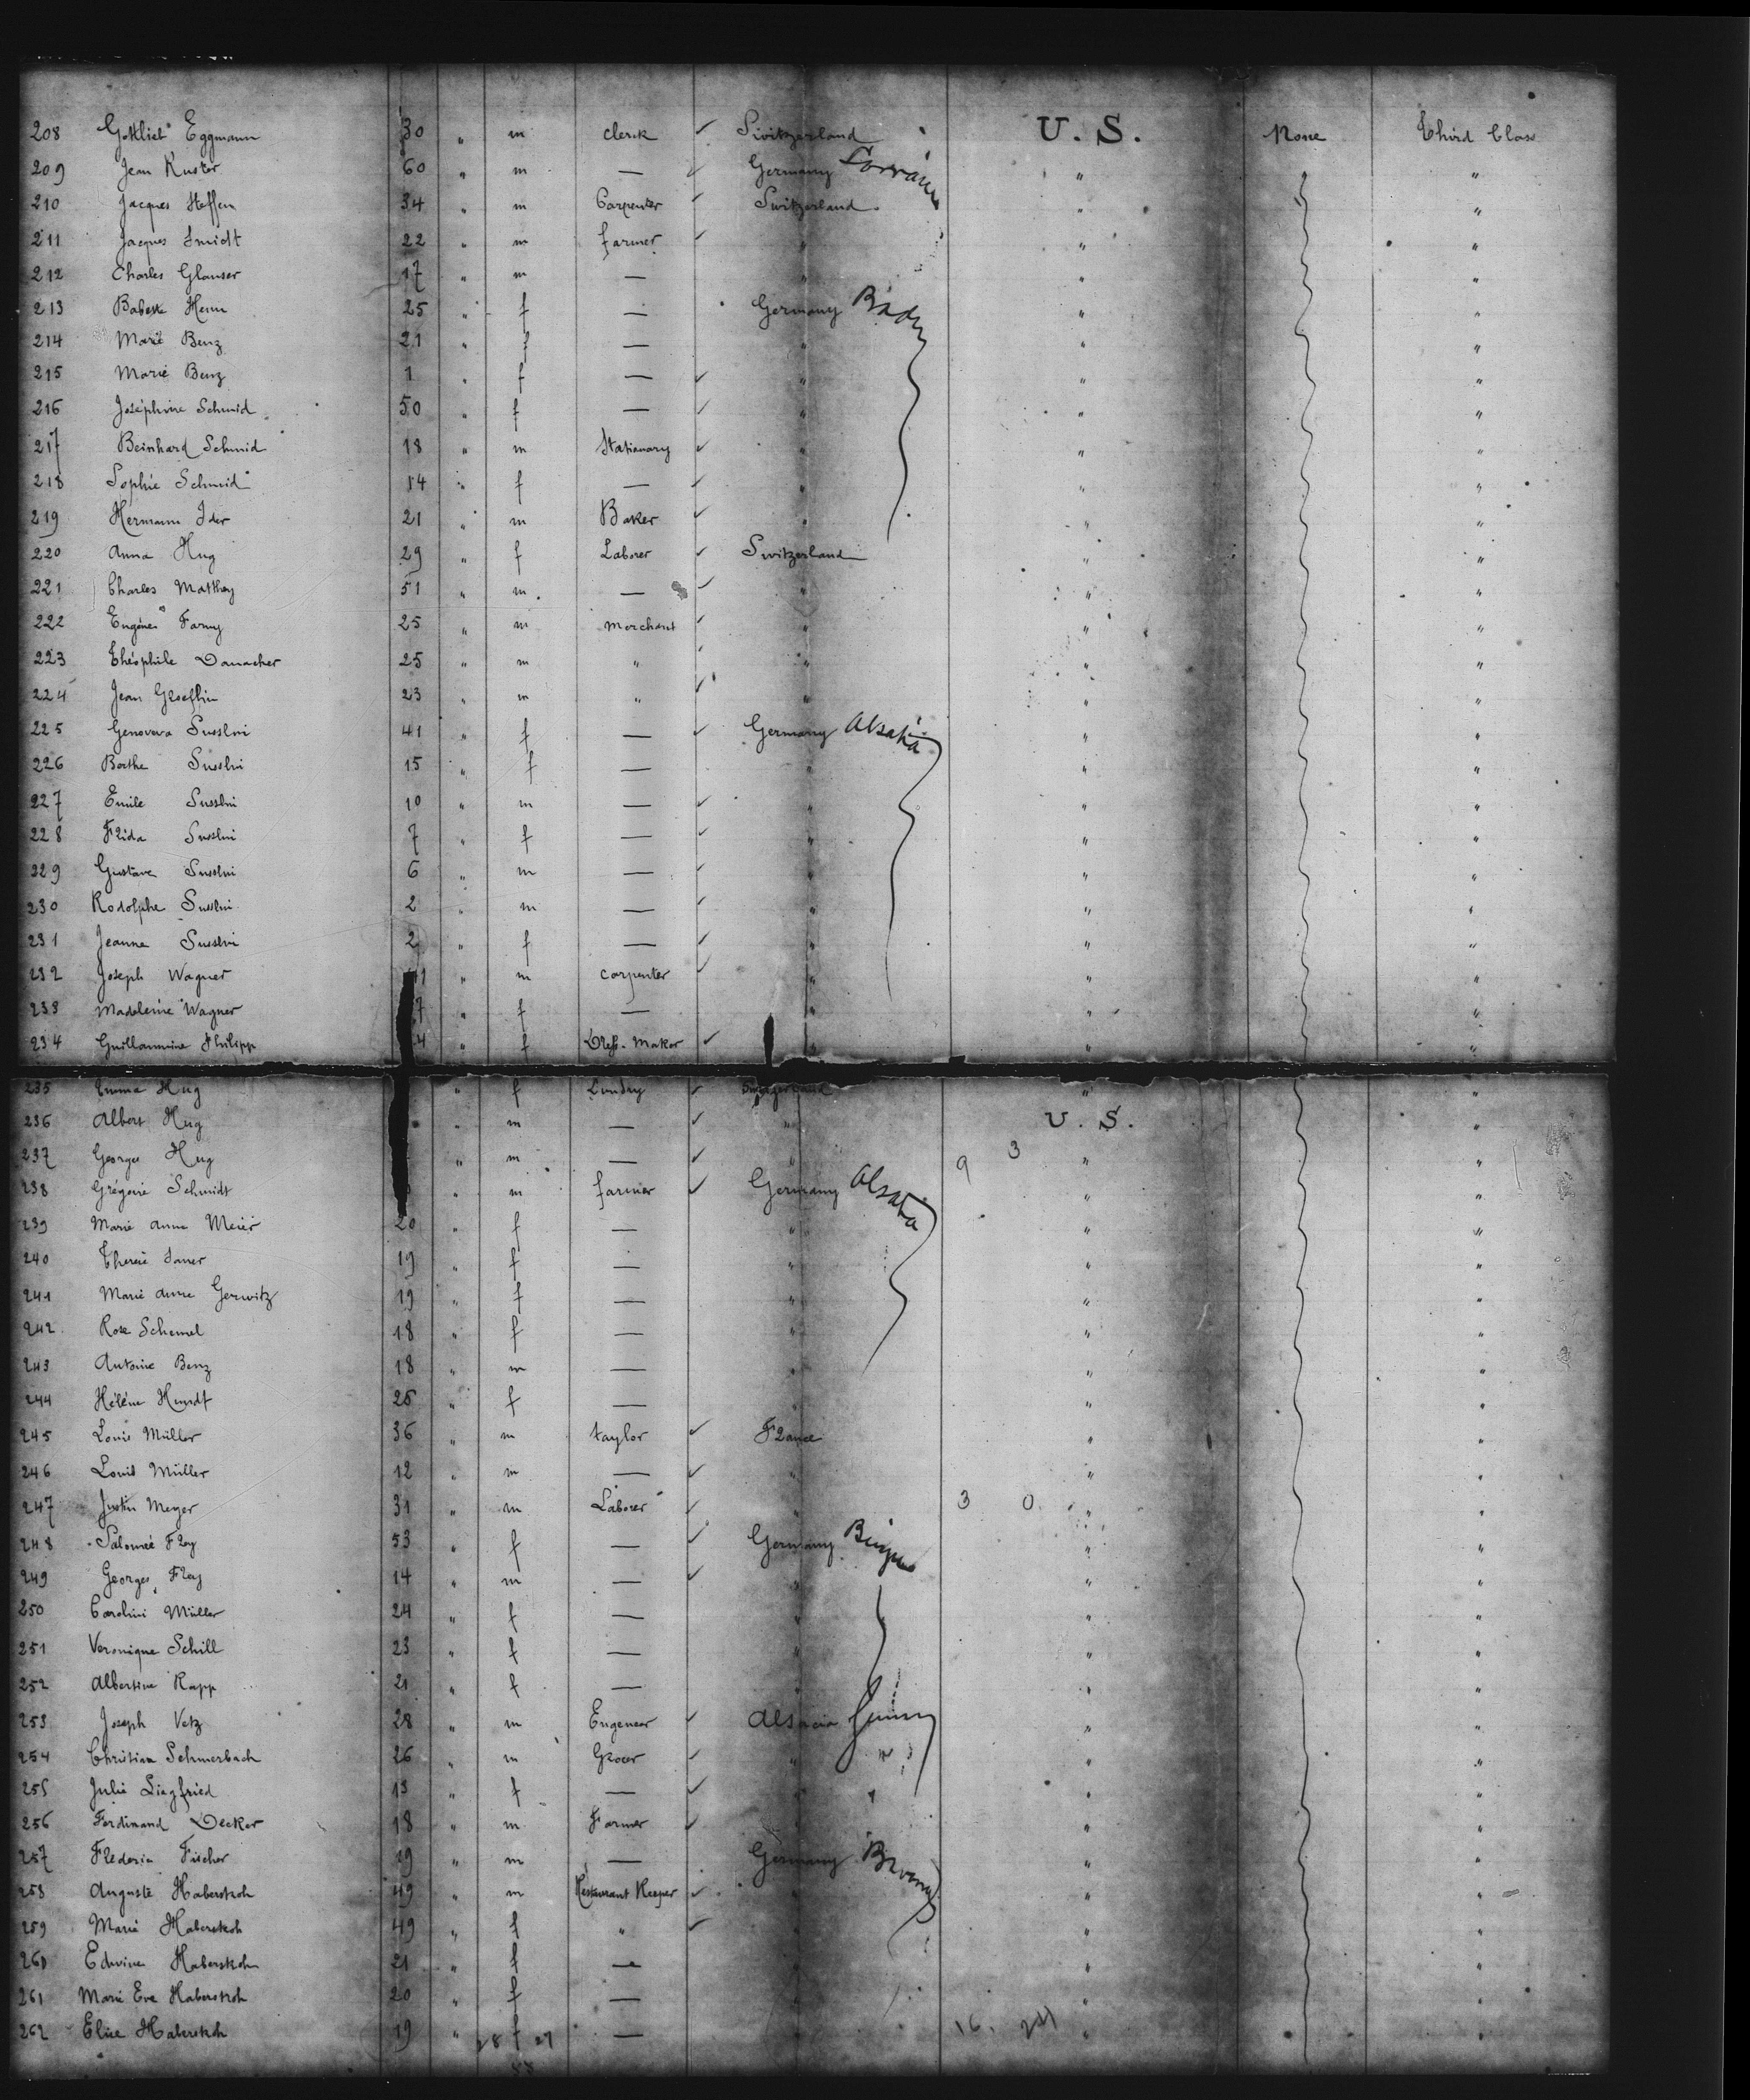 208 Gottlieb Eggmann 30 " m clerk ✓ Switzerland U. S. None Third Class
209 Jean Kuster 60 " m — ✓ Germany Lorraine " "
210 Jacques Steffen 34 " m Carpenter ✓ Switzerland " "
211 Jacques Smidt 22 " m farmer ✓ " " "
212 Charles Glauser 17 " m — " " "
213 Babette Henn 25 " f — Germany Baden " "
214 Marie Benz 21 " f — " " "
215 Marie Benz 1 " f — ✓ " " "
216 Joséphine Schmid 50 " f — ✓ " " "
217 Beinhard Schmid 18 " m Stationary ✓ " " "
218 Sophie Schmid 14 " f — ✓ " " "
219 Hermann Ider 21 " m Baker ✓ " " "
220 Anna Hug 29 " f Laborer ✓ Switzerland " "
221 Charles Matthey 51 " m — ✓ " " "
222 Eugène Farny 25 " m Merchant ✓ " " "
223 Théophile Danacher 25 " m " ✓ " " "
224 Jean 23 " m " ✓ " " "
225 Genoveva Susslin 41 " f — ✓ Germany Alsatia " "
226 Berthe Susslin 15 " f — " " "
227 Emile Susslin 10 " m — ✓ " " "
228 Frida Susslin 7 " f — ✓ " " "
229 Gustave Susslin 6 " m — ✓ " " "
230 Rodolphe Susslin 2 " m — ✓ " " "
231 Jeanne Susslin 2 " f — ✓ " " "
232 Joseph Wagner 1 " m carpenter ✓ " " "
233 Madeleine Wagner 7 " f — " " "
234 Guillaumine Philipp 4 " f Dress-Maker ✓ " " "
235 Emma Hug " f Lundry ✓ Switzerland " "
236 Albert Hug " m — ✓ " U. S. "
237 Georges Hug " m — ✓ " 9 3 " "
238 Grégoire Schmidt " m farmer ✓ Germany Alsatia "
239 Marie Anne Meier 20 f — " " "
240 Therese 19 " f — " " "
241 Marie Anne Gerwitz 19 " f — " " "
242 Rose Schemel 18 " f — " " "
243 Antoine Benz 18 " m — " " "
244 Hélène Hundt 25 " f — " "
245 Louis Müller 36 " m taylor ✓ France " "
246 Louis Müller 12 " m — ✓ " " "
247 Justin Meyer 31 " m Laborer ✓ " 3 0 " "
248 Salomé Frey 53 " f — ✓ Germany " "
249 Georges Frey 14 " m — ✓ " " "
250 Caroline Müller 24 " f — " " "
251 Veronique Schill 23 " f — " " "
252 Albertine Rapp 21 " f — " " "
253 Joseph Vetz 28 " m Engeneer ✓ Alsacia " "
254 Christian Schmerbach 26 " m Grocer ✓ " " "
255 Julie Siegfried 13 " f — ✓ " " "
256 Ferdinand Decker 18 " m Farmer ✓ " " "
257 Frederic Fischer 19 " m — Germany " "
258 Auguste Haberstroh 49 " m Restaurant Keeper ✓ " " "
259 Marie Haberstroh 49 " f " ✓ " "
260 Edwine Haberstroh 21 " f — " "
261 Marie Eve Haberstroh 20 " f — " "
262 Elise Haberstroh 19 " f — " "
28 27 16.